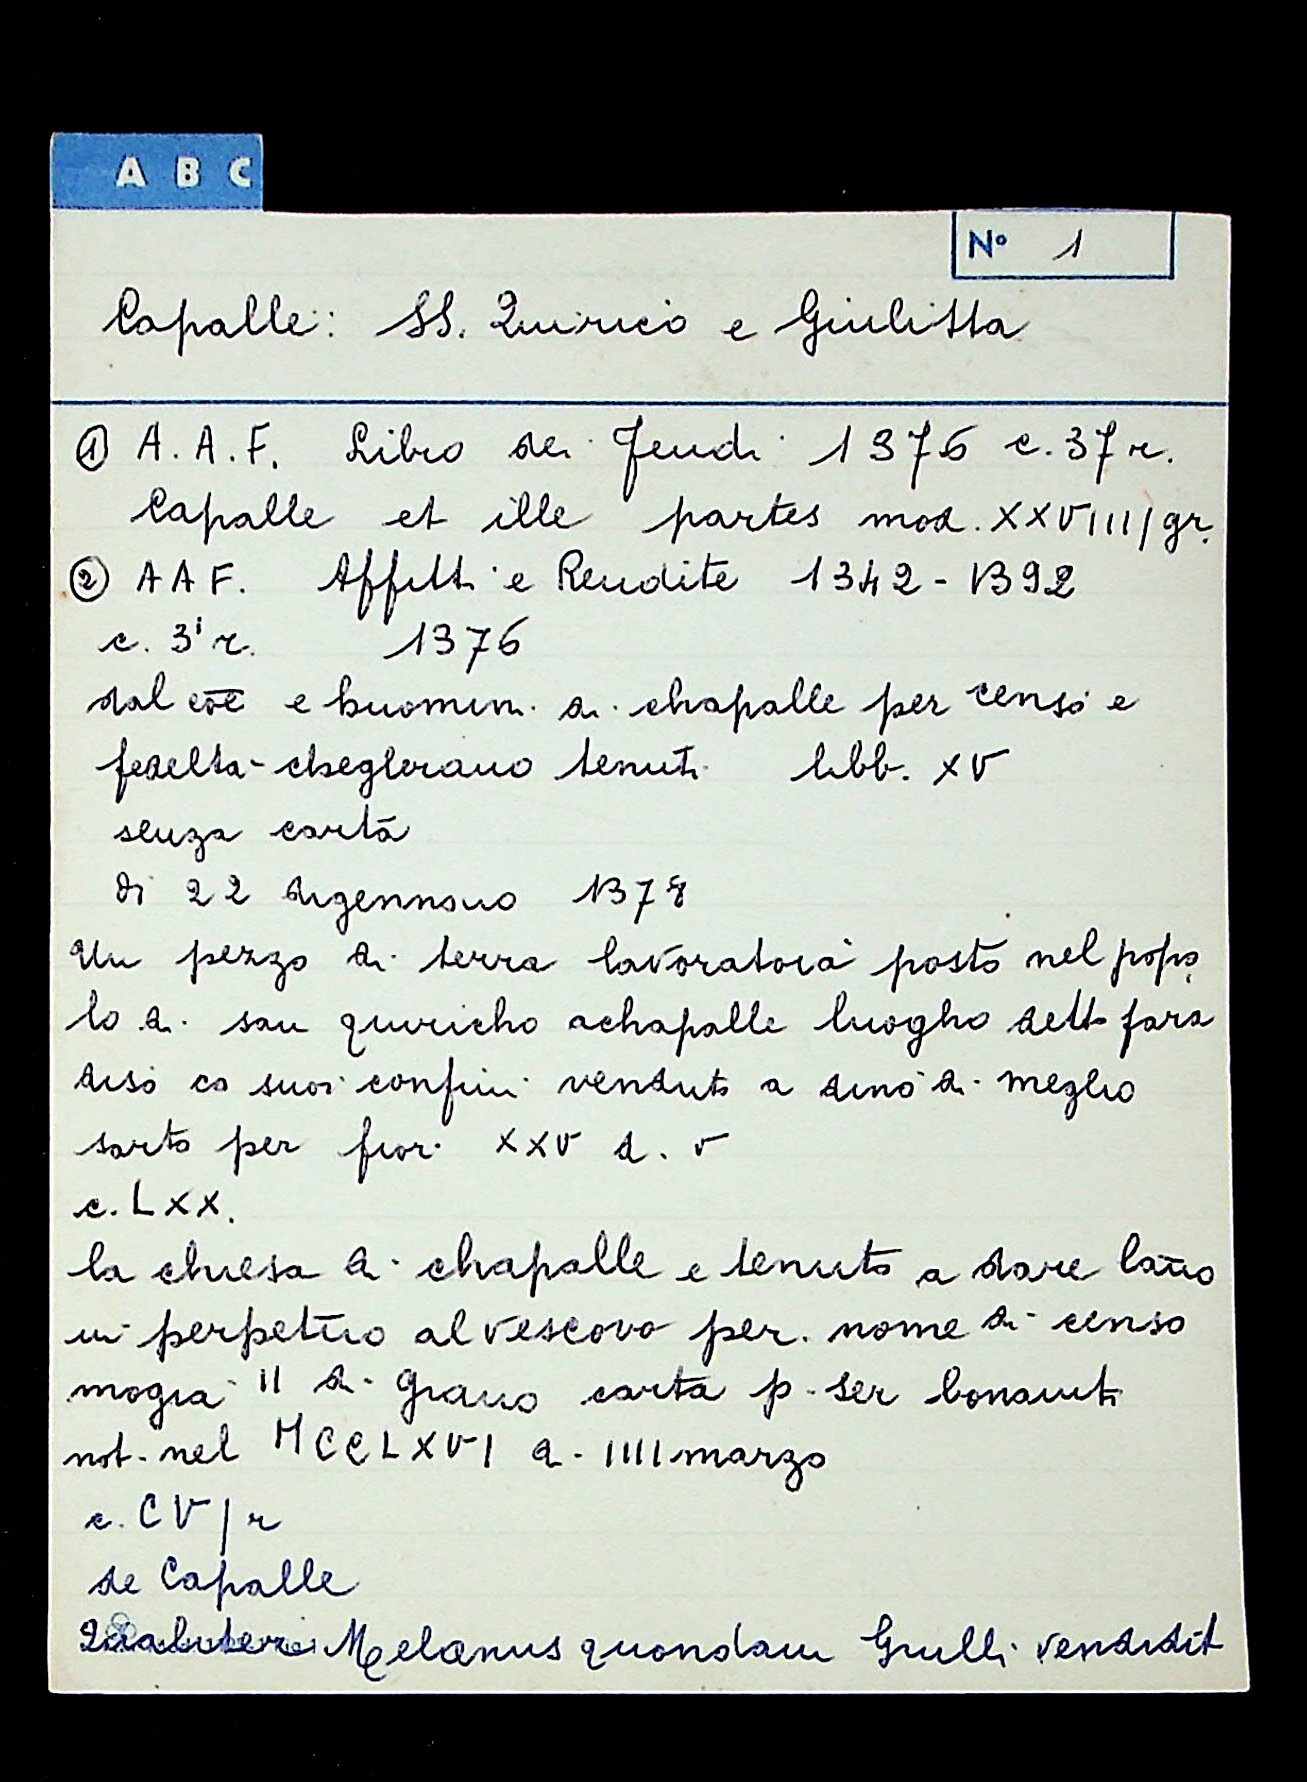 A B C
N° 1
Capalle: SS. Quirico e Giulitta
① A.A.F. Libro dei Feudi 1376 c. 37 r.
Capalle et ille partes mod. XXVIII/gr.
② A A F. Affitti e Rendite 1342 - 1392
c. 3' r. 1376
dal cōē e huomini di chapalle per censo e
fedelta - cheglerano tenuti libb. XV
senza carta
di 22 digennaio 1378
Un pezzo di terra lavoratoia posto nel popo
lo di san quiricho achapalle luogho detto para
diso co suoi confini venduto a dino di meglio
sarto per fior. XXV d. v
c. LXX.
la chiesa di chapalle e tenuto a dare lāno
in perpetuo al vescovo per. nome di censo
mogia II di grano carta p. ser bonaiuti
not. nel MCCLXVI a. IIII marzo
c. CV/r
de Capalle
Qualiter Melanus quondam Giulli vendidit